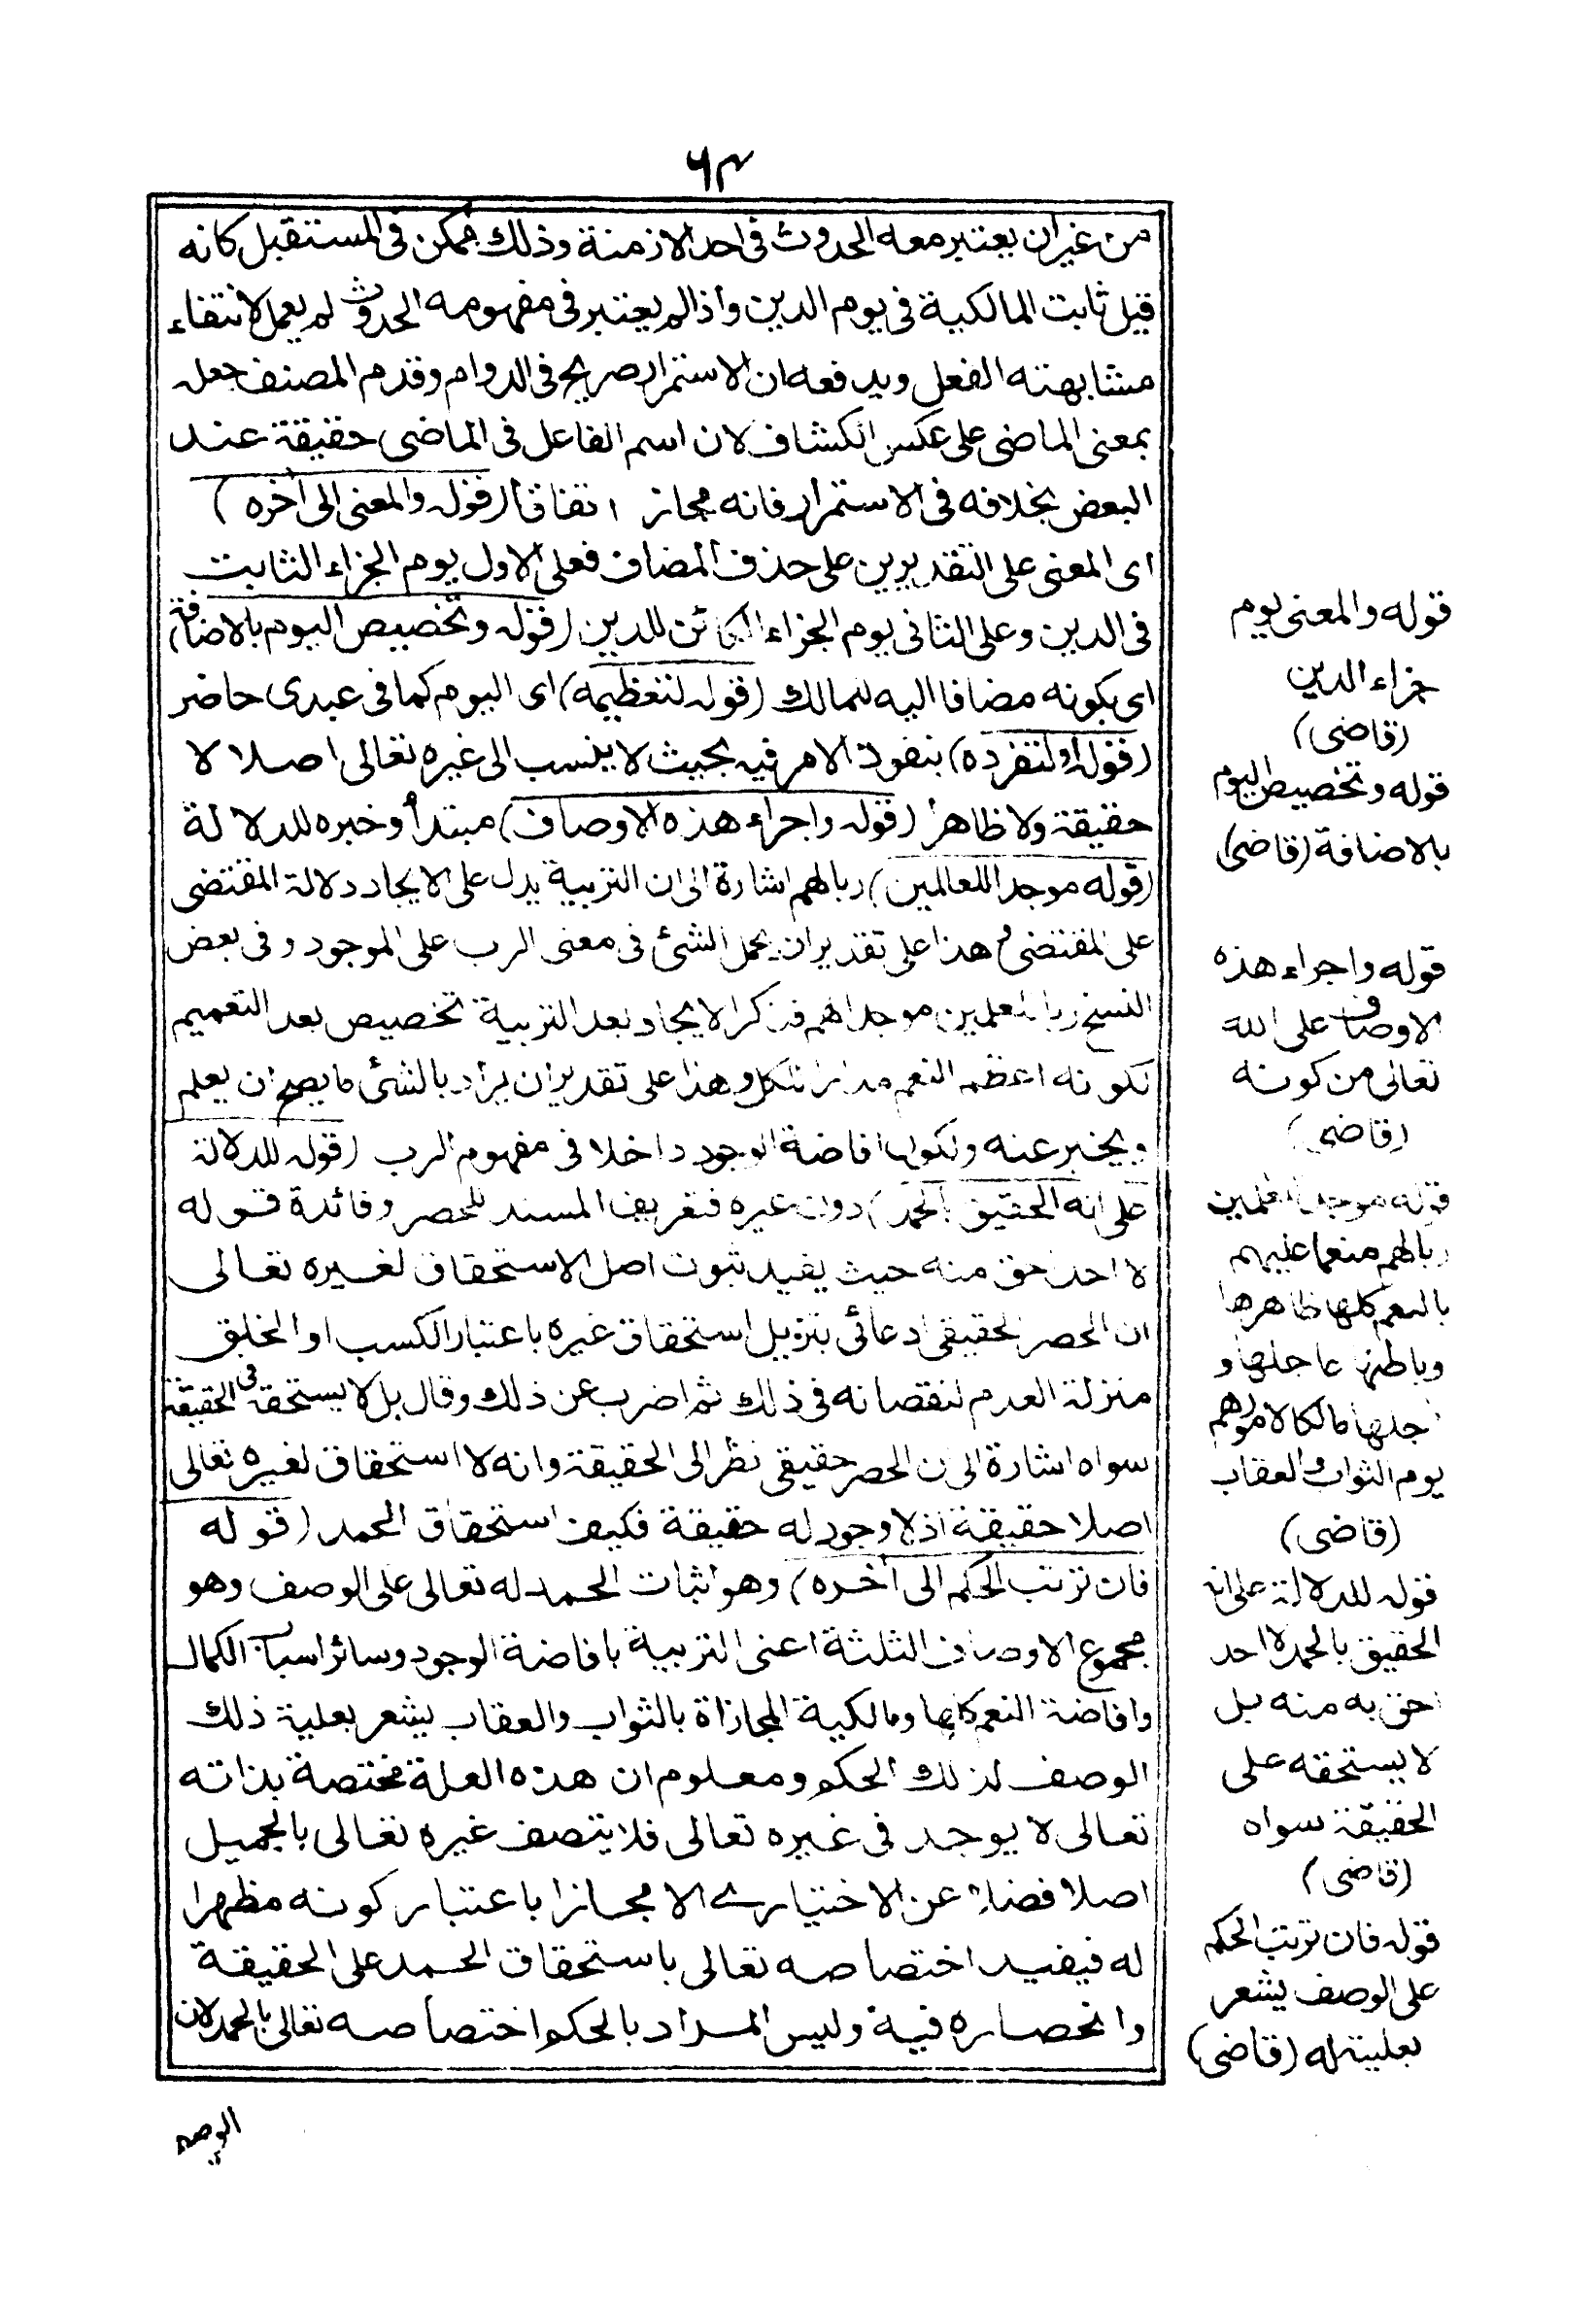 ٦٣
من غير ان يعتبر معه الحدوث فى احد الازمنة وذلك ممكن فى المستقبل كانه
قيل ثابت المالكية فى يوم الدين واذا لم يعتبر فى مفهومه الحدوث لم يعمل لانتفاء
مشابهته الفعل ويدفعه ان الاستمرار صريح فى الدوام وقدم المصنف جعله
بمعنى الماضى على عكس الكشاف لان اسم الفاعل فى الماضى حقيقة عند
البعض بخلافه فى الاستمرار فانه مجاز اتفاقا (قوله والمعنى الى آخره)
اى المعنى على التقديرين على حذف المضاف فعلى الاول يوم الجزاء الثابت
فى الدين وعلى الثانى يوم الجزاء الكائن للدين (قوله وتخصيص اليوم بالاضافة)
اى بكونه مضافا اليه لمالك (قوله لتعظيمه) اى اليوم كما فى عبدى حاضر
(قوله او لتفرده) بنفوذ الامر فيه بحيث لا ينسب الى غيره تعالى اصلا لا
حقيقة ولا ظاهرا (قوله واجراء هذه الاوصاف) مبتدأ وخبره للدلالة
(قوله موجدا للعالمين) ربا لهم اشارة الى ان التربية يدل على الايجاد دلالة المقتضى
على المقتضى هذا على تقدير ان يحمل الشئ فى معنى الرب على الموجود وفى بعض
النسخ ربا للعلمين موجدا لهم فذكر الايجاد بعد التربية تخصيص بعد التعميم
لكونه اعظم النعم مدارا للكل وهذا على تقدير ان يراد بالشئ ما يصح ان يعلم
ويخبر عنه ولكون افاضة الوجود داخلا فى مفهوم الرب (قوله للدلالة
على انه الحقيق بالحمد) دون غيره فتعريف المسند للحصر وفائدة قوله
لا احد احق منه حيث يفيد ثبوت اصل الاستحقاق لغيره تعالى
ان الحصر الحقيقى ادعائى بتنزيل استحقاق غيره باعتبار الكسب او الخلق
منزلة العدم لنقصانه فى ذلك ثم اضرب عن ذلك وقال بل لا يستحقه فى الحقيقة
سواه اشارة الى ان الحصر حقيقى نظر الى الحقيقة وانه لا استحقاق لغيره تعالى
اصلا حقيقة اذ لا وجود له حقيقة فكيف استحقاق الحمد (قوله
فان ترتب الحكم الى آخره) وهو اثبات الحمد له تعالى على الوصف وهو
مجموع الاوصاف الثلثة اعنى التربية بافاضة الوجود وسائر اسباب الكمال
وافاضة النعم كلها ومالكية المجازاة بالثواب والعقاب يشعر بعلية ذلك
الوصف لذلك الحكم ومعلوم ان هذه العلة مختصة بذاته
تعالى لا يوجد فى غيره تعالى فلا يتصف غيره تعالى بالجميل
اصلا فضلا عن الاختيارى الا مجازا باعتبار كونه مظهرا
له فيفيد اختصاصه تعالى باستحقاق الحمد على الحقيقة
وانحصاره فيه وليس المراد بالحكم اختصاصه تعالى بالحمد لان
قوله والمعنى يوم
جزاء الدين
(قاضى)
قوله وتخصيص اليوم
بالاضافة (قاضى)
قوله واجراء هذه
الاوصاف على الله
تعالى من كونه
(قاضى)
قوله موجدا للعلمين
ربا لهم منعما عليهم
بالنعم كلها ظاهرها
وباطنها عاجلها و
آجلها مالكا لامورهم
يوم الثواب والعقاب
(قاضى)
قوله للدلالة على انه
الحقيق بالحمد لا احد
احق به منه بل
لا يستحقه على
الحقيقة سواه
(قاضى)
قوله فان ترتب الحكم
على الوصف يشعر
بعليته له (قاضى)